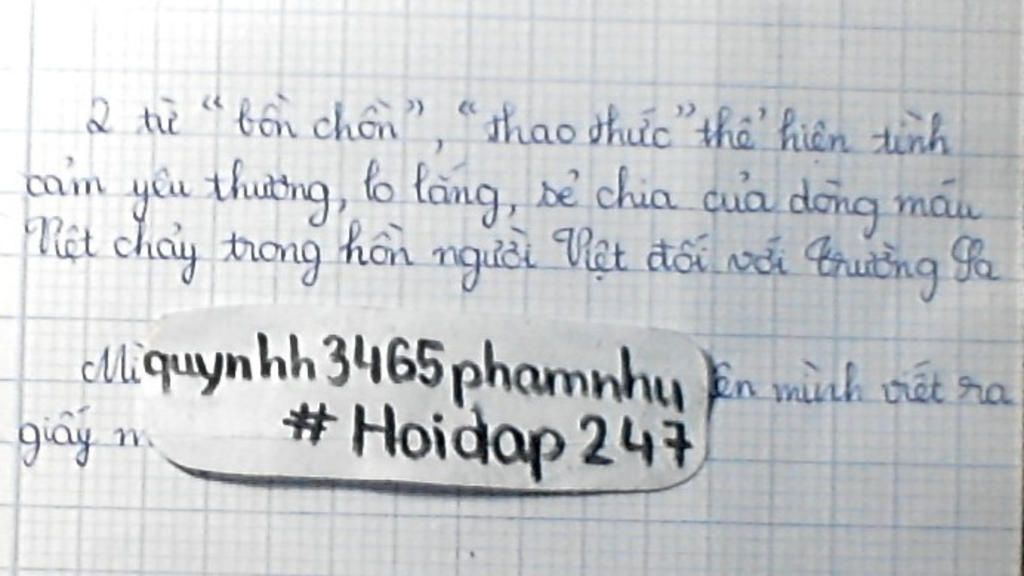 2 từ “bồn chồn”, “thao thức” thể hiện tình
cảm yêu thương, lo lắng, sẻ chia của dòng máu
Việt chảy trong hồn người Việt đối với Trường Sa
quynhh3465phamnhu mình viết ra
giấy
# Hoidap247